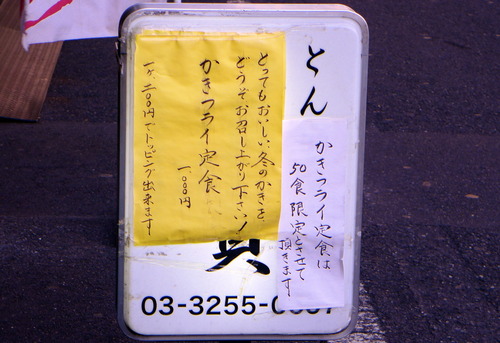 とん
とってもおいしい冬のかきを
どうぞお召し上がり下さい!
かきフライ定食
一、〇〇〇円
一ヶ、二〇〇円でトッピング出来ます
かきフライ定食は
50食限定とさせて
頂きます
03-3255-0